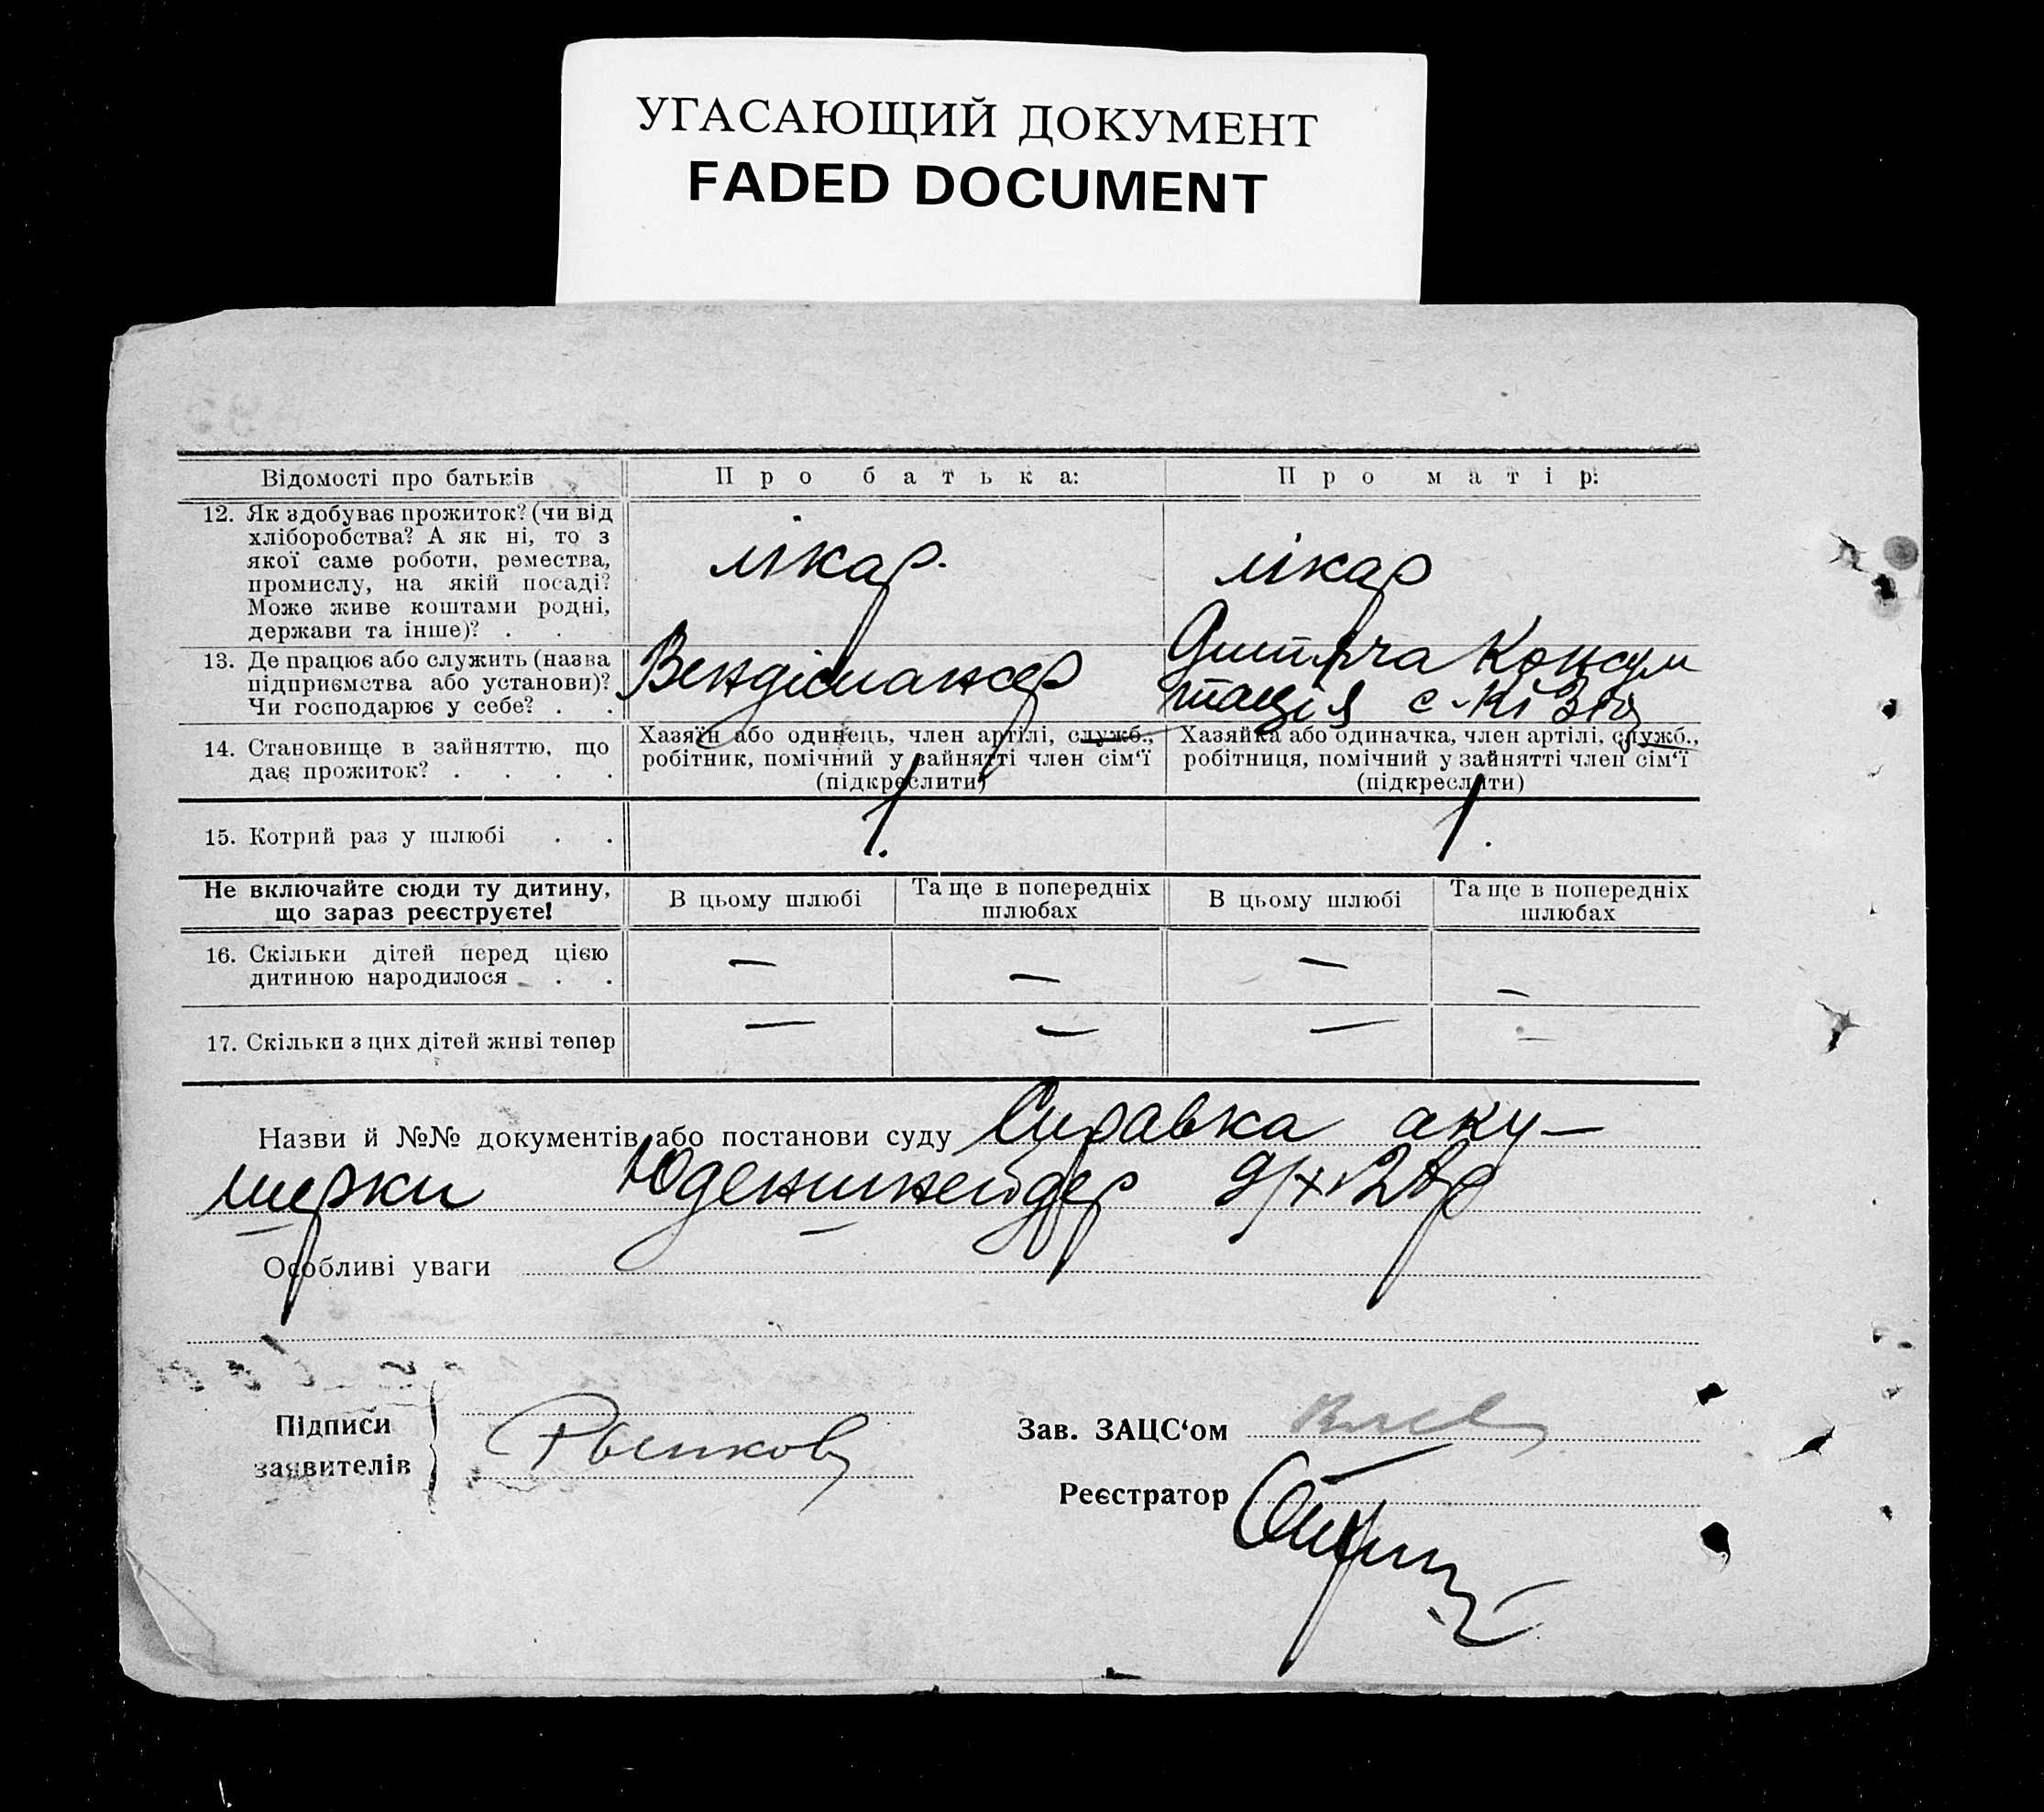 УГАСАЮЩИЙ ДОКУМЕНТ
FADED DOCUMENT
Відомості про батьків
Про батька:
Про матір:
12. Як здобуває прожиток? (чи від
хліборобства? А як ні, то з
якої саме роботи, ремества,
промислу, на якій посаді?
Може живе коштами родні,
держави та інше)? . .
лікар.
лікар
13. Де працює або служить (назва
підприємства або установи)?
Чи господарює у себе? . .
Вендіспансер
Дитяча Консуль
тація
14. Становище в зайняттю, що
дає прожиток? . . . .
Хазяїн або одинець, член артілі, служб.,
робітник, помічний у зайнятті член сім‘ї
(підкреслити)
Хазяйка або одиначка, член артілі, служб.,
робітниця, помічний у зайнятті член сім‘ї
(підкреслити)
15. Котрий раз у шлюбі . .
1.
1.
Не включайте сюди ту дитину,
що зараз реєструєте!
В цьому шлюбі
Та ще в попередніх
шлюбах
В цьому шлюбі
Та ще в попередніх
шлюбах
16. Скільки дітей перед цією
дитиною народилося . .
— — — —
17. Скільки з цих дітей живі тепер
— — — —
Назви й №№ документів або постанови суду Справка аку-
шерки Юденшнейдер
Особливі уваги
Підписи
заявителів
Зав. ЗАЦС‘ом
Реєстратор